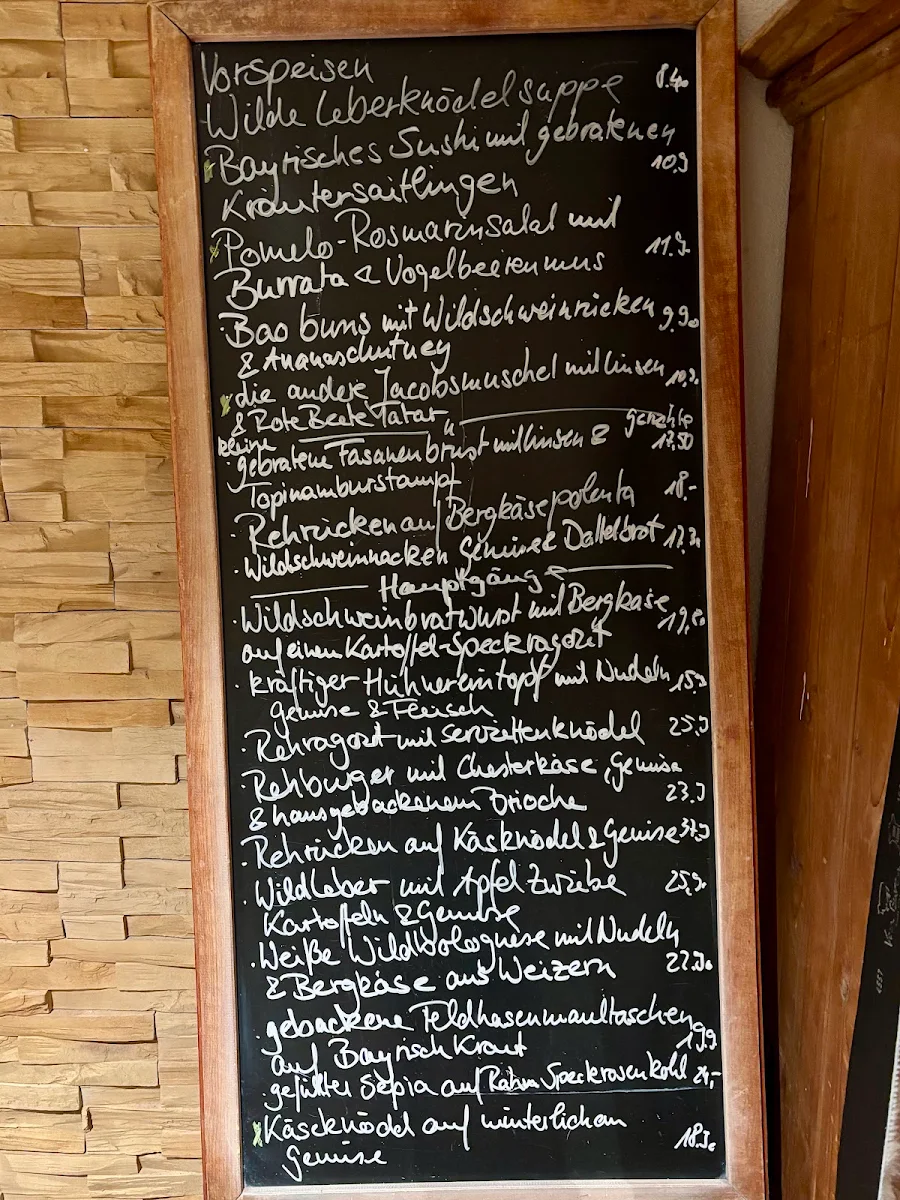 Vorspeisen
Wilde Leberknödelsuppe 8.40
Bayrisches Sushi mit gebratenen
Kräutersaitlingen 10.9
Pomelo-Rosmarinsalat mit
Burrata & Vogelbeerenmus 11.9
Bao buns mit Wildschweinrücken 9.90
& Ananaschutney
die andere Jacobsmuschel mit Linsen
& Rote Beete Tatar"
kleine
gebratene Fasanenbrust mit Linsen & 17.50
Topinamburstampf
Rehrücken auf Bergkäsepolenta 18.-
Wildschweinnacken Gemüse & Dattelbrot
Hauptgänge
Wildschweinbratwurst mit Bergkäse
auf einen Kartoffel-Speckragout
kräftiger Hühnereintopf mit Nudeln
Gemüse & Fleisch
Rehragout mit serviettenknödel 25.9
Rehburger mit Chesterkäse, Gemüse
& hausgebackenem Brioche 23.9
Rehrücken auf Käsknödel & Gemüse
Wildleber mit Apfel Zwiebe 25.90
Kartoffeln & Gemüse
Weiße Wildbolognese mit Nudeln
& Bergkäse aus Weizern
gebackene Feldhasenmaultaschen
auf Bayrisch Kraut 19.9
gefüllter Sepia auf Rahm Speckrosenkohl 24,-
Käseknödel auf winterlichem
Gemüse